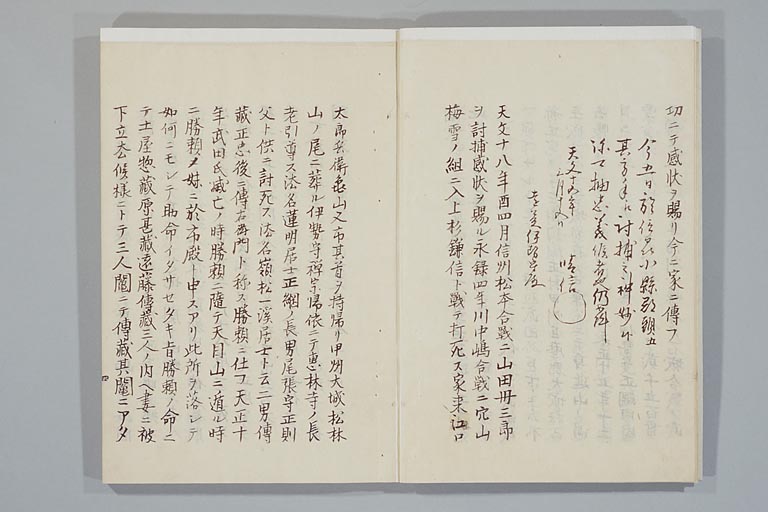 功ニテ感状ヲ賜リ今ニ家ニ傳フ
今五日於信州小縣郡頸五
其方手ニ討捕之神妙
弥可抽忠義候者仍如件
天文十五年
晴信
天文十八年酉四月信州松本合戰ニ山田卌三郎
ヲ討捕感状ヲ賜ル永録四年川中嶋合戰ニ穴山
梅雪ノ組ニ入上杉鎌信ト戰テ打死ス家来江口
太郎兵衛亀山又市其首ヲ持帰リ甲州大城松林
山ノ尾ニ葬ル伊勢守禅宗帰依ニテ惠林寺ノ長
老引導ス法名蓮明居士正綱ノ長男尾張守正則
父ト供ニ討死ス法名嶺松一溪居士ト云二男傳
藏正忠後ニ傳右衛門ト称ス勝頼ニ仕フ天正十
年武田氏滅亡ノ時勝頼ニ隨テ天目山ニ遁ル時
ニ勝頼ノ妹ニ於市殿ト申スアリ此所ヲ落シテ
如何ニモシテ助命イタサセタキ旨勝頼ノ命ニ
テ土屋惣藏原甚藏遠藤傳藏三人ノ内ヘ妻ニ被
下立厺候様ニトテ三人鬮ニテ傳藏其鬮ニアタ
四